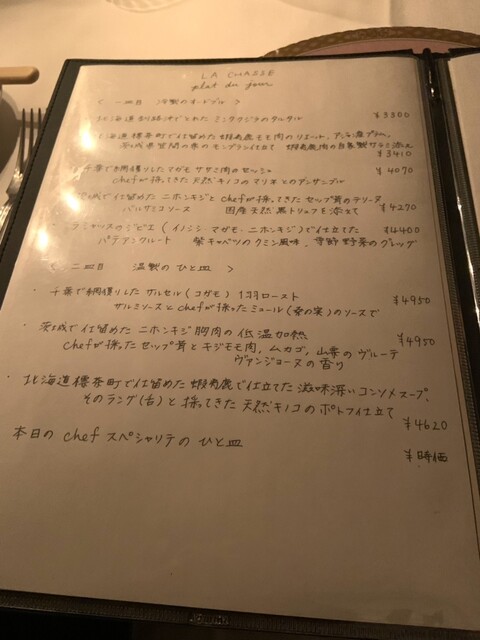 LA CHASSE
plat du jour
< 一皿目 冷製のオードブル >
北海道釧路沖でとれた ミンククジラのタルタル ¥3300
北海道標茶町で仕留めた蝦夷鹿モモ肉のリエット、
茨城県笠間の栗のモンブラン仕立て 蝦夷鹿肉の自家製サラミ添え
¥3410
千葉で網獲りしたマガモ ササミ肉のセッシュ ¥4070
chefが採ってきた 天然キノコのマリネとのアンサンブル
茨城で仕留めたニホンキジと chefが採ってきたセップ茸のテリーヌ
バルサミコソース 国産天然黒トリュフを添えて ¥4270
ラシャッスのジビエ (イノシシ・マガモ・ニホンキジ)で仕立てた ¥4400
パテアンクルート 紫キャベツのクミン風味、 野菜のグレッグ
< 二皿目 温製のひと皿 >
・千葉で網獲りした サルセル (コガモ) 1羽ロースト
サルミソースと chefが採ったミュール(桑の実)のソースで ¥4950
茨城で仕留めた ニホンキジ胸肉の低温加熱 ¥4950
chefが採ったセップ茸とキジモモ肉, ムカゴ, 山栗のヴルーテ
ヴァンジョーヌの香り
・北海道標茶町で仕留めた蝦夷鹿で仕立てた滋味深いコンソメスープ、
そのラング(舌)と 採ってきた天然キノコのポトフ仕立て
¥4620
本日の chef スペシャリテの ひと皿
¥時価